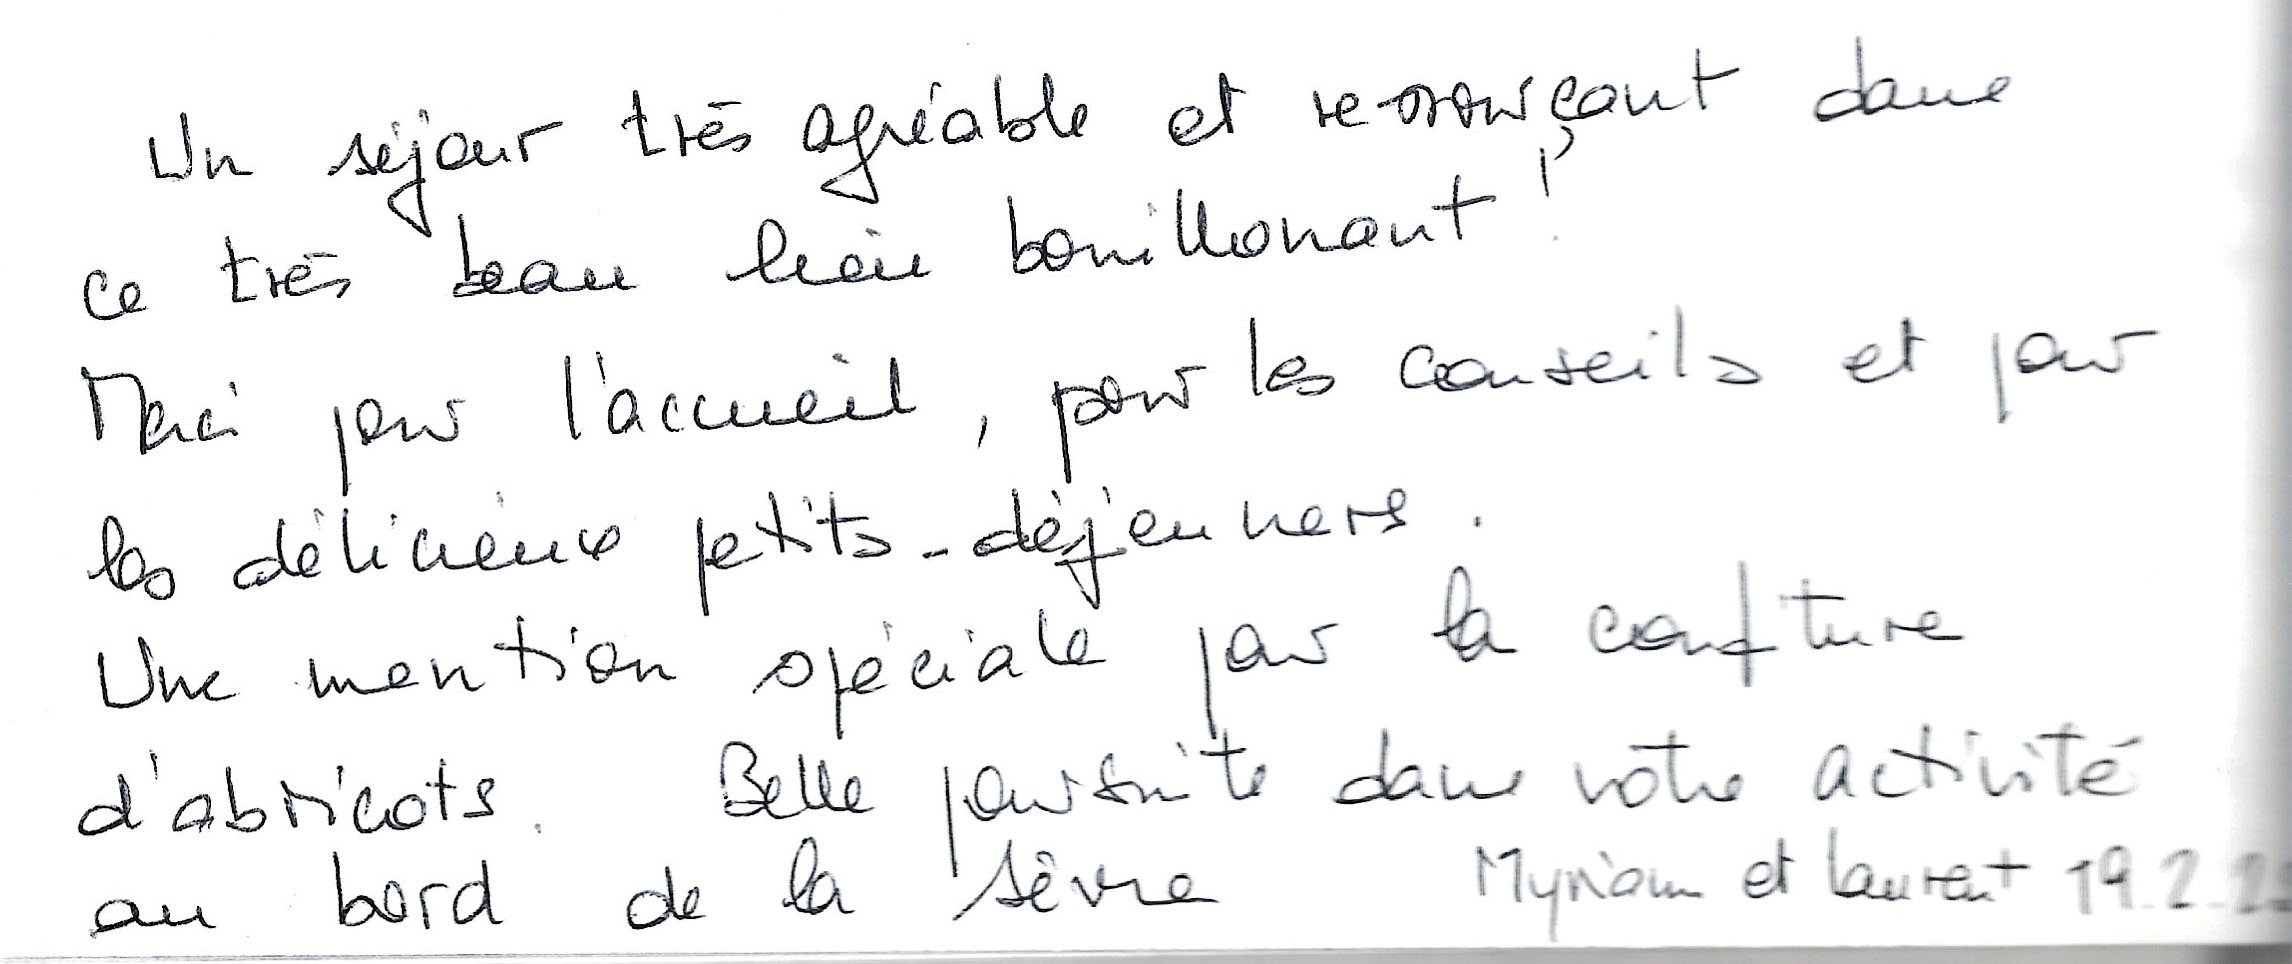 Un séjour très agréable et ressourçant dans
ce très beau lieu bouillonant !
Merci pour l'accueil, pour les conseils et pour
les délicieux petits-déjeuners.
Une mention spéciale pour la confiture
d'abricots. Belle poursuite dans votre activité
au bord de la Sèvre Myriam et Laurent 19.2.2